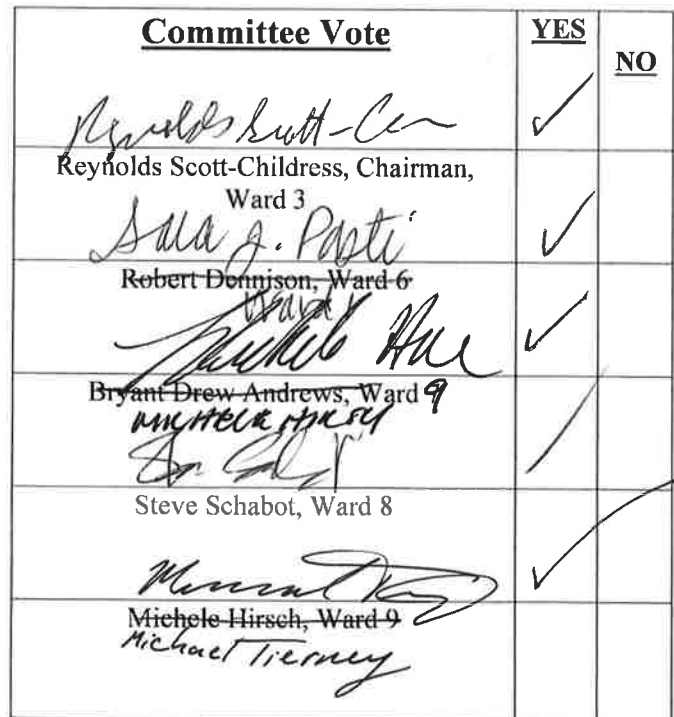 Committee Vote
YES
NO
Reynolds Scott-
Reynolds Scott-Childress, Chairman,
Ward 3
Sara J. Pasti
Robert Dennison, Ward 6
Ward 1
Michele
Bryant Drew Andrews, Ward 9
MICHELE HIRSCH
Steve Schabot, Ward 8
Michele Hirsch, Ward 9
Michael Tierney